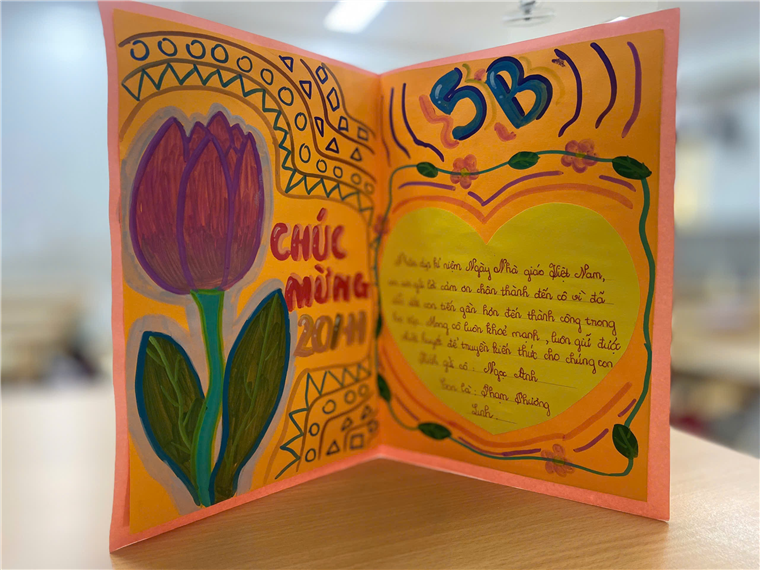 CHÚC
MỪNG
20/11
5B
Nhân dịp kỉ niệm Ngày Nhà giáo Việt Nam,
con xin gửi lời cảm ơn chân thành đến cô vì đã
dìu dắt con tiến gần hơn đến thành công trong
học tập. Mong cô luôn khoẻ mạnh, luôn giữ được
nhiệt huyết để truyền kiến thức cho chúng con
Kính gửi cô: Ngọc Anh
Con là: Phạm Phương
Linh